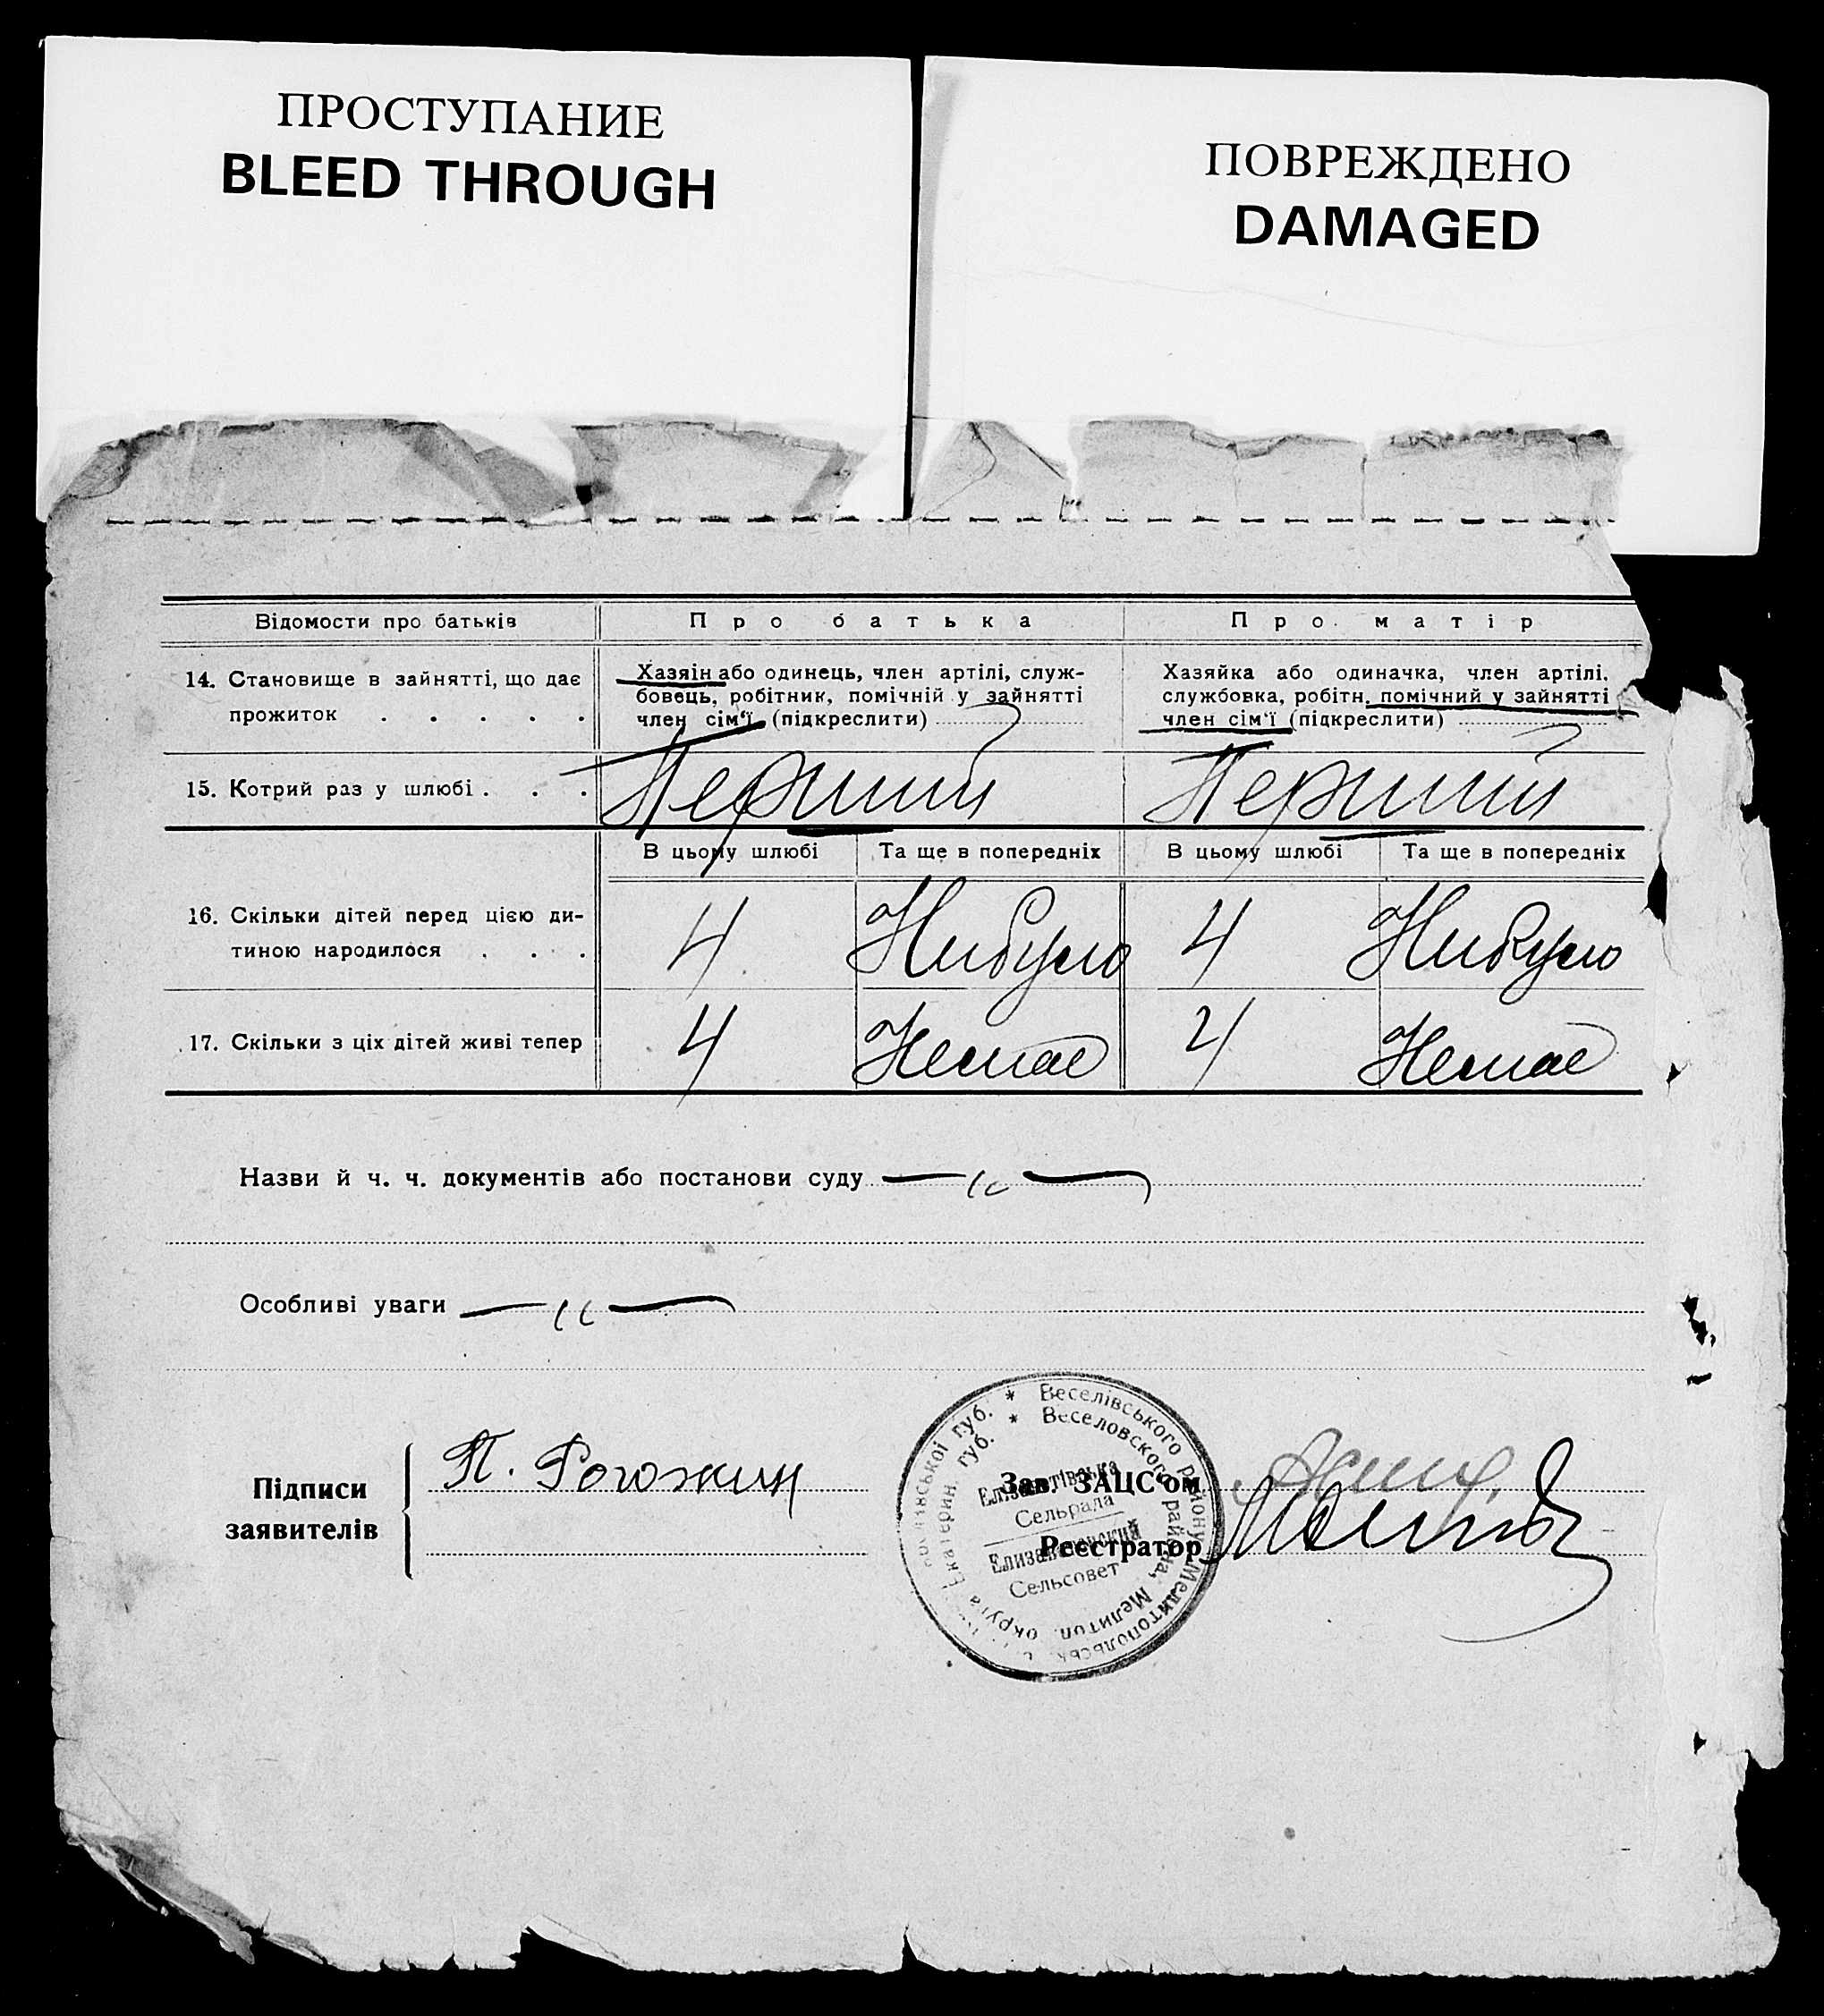 ПРОСТУПАНИЕ
BLEED THROUGH
ПОВРЕЖДЕНО
DAMAGED
Відомости про батьків
Про батька
Про матір
14. Становище в зайнятті, що дає
прожиток . . . . .
Хазяін або одинець, член артілі, служ-
бовець, робітник, помічній у зайнятті
член сім'ї (підкреслити)
Хазяйка або одиначка, член артілі,
службовка, робітн. помічний у зайнятті
член сім'ї (підкреслити)
15. Котрий раз у шлюбі . . .
Перший
Перший
В цьому шлюбі
Та ще в попередніх
В цьому шлюбі
Та ще в попередніх
16. Скільки дітей перед цією ди-
тиною народилося . . .
4
Нибуло
4
Нибуло
17. Скільки з ціх дітей живі тепер
4
Немає
4
Немає
Назви й ч. ч. документів або постанови суду — „ —
Особливі уваги — „ —
Підписи
заявителів
П. Рогожин
Зав. ЗАЦС'ом
Реєстратор
* Веселівського району Мелитопольськ.
губ. * Веселовского района, Мелитоп. округа Екатерин.
Сельрада
Сельсовет